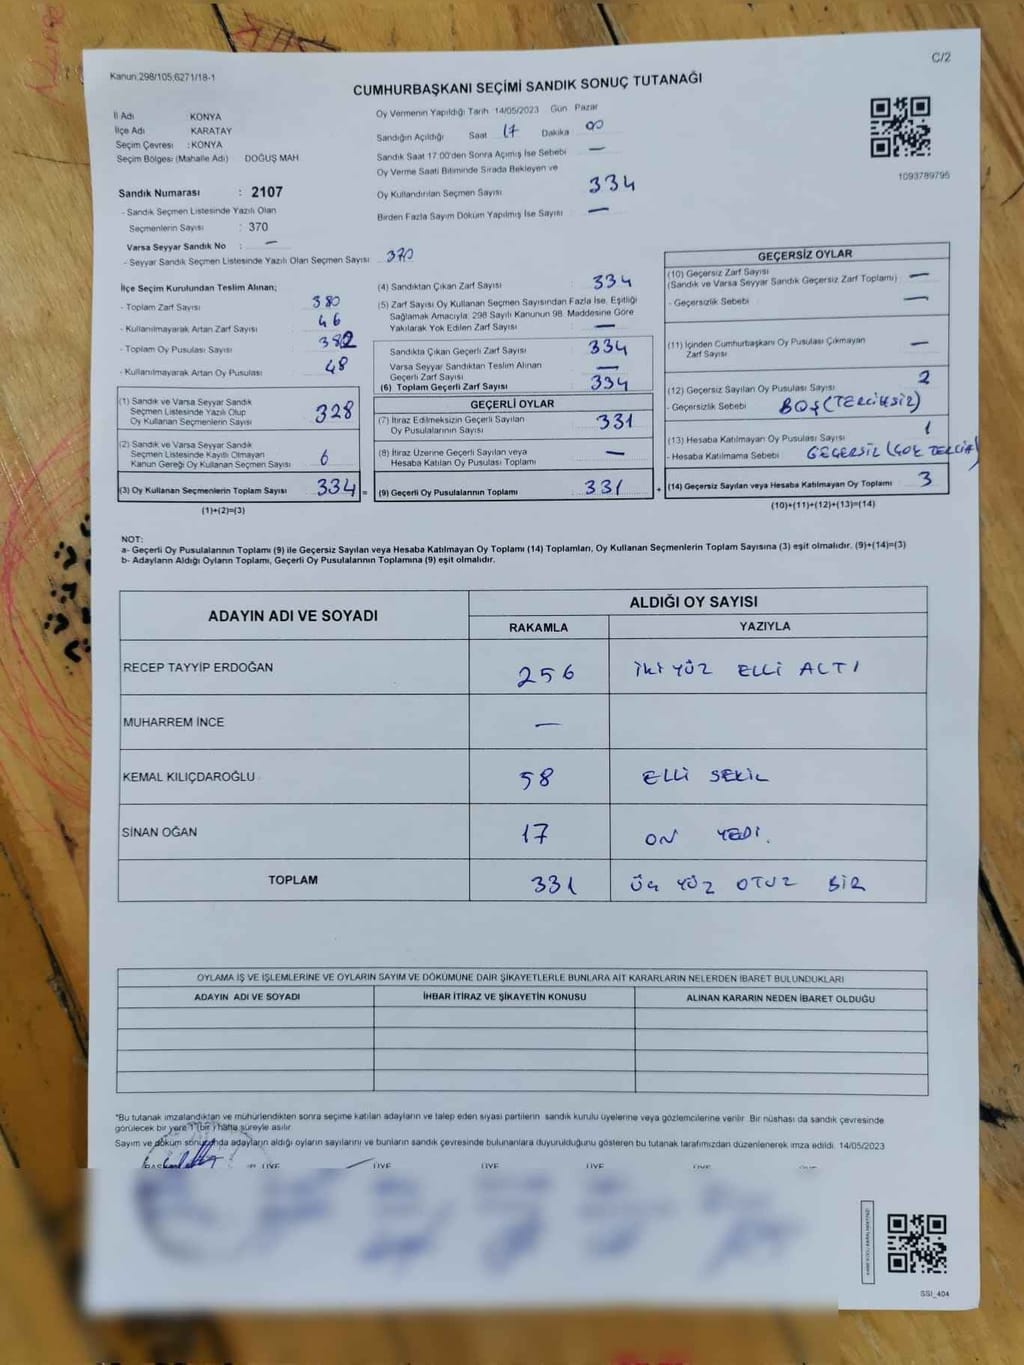 C/2
Kanun:298/105;6271/18-1
CUMHURBAŞKANI SEÇİMİ SANDIK SONUÇ TUTANAĞI
İl Adı KONYA
İlçe Adı KARATAY
Seçim Çevresi : KONYA
Seçim Bölgesi (Mahalle Adı) DOĞUŞ MAH.
Sandık Numarası : 2107
- Sandık Seçmen Listesinde Yazılı Olan
Seçmenlerin Sayısı : 370
Varsa Seyyar Sandık No : —
- Seyyar Sandık Seçmen Listesinde Yazılı Olan Seçmen Sayısı: 370
Oy Vermenin Yapıldığı Tarih 14/05/2023 Gün Pazar
Sandığın Açıldığı Saat 17 Dakika 00
Sandık Saat 17:00'den Sonra Açılmış İse Sebebi —
Oy Verme Saati Bitiminde Sırada Bekleyen ve
Oy Kullandırılan Seçmen Sayısı 334
Birden Fazla Sayım Döküm Yapılmış İse Sayısı —
1093789795
İlçe Seçim Kurulundan Teslim Alınan;
- Toplam Zarf Sayısı 380
- Kullanılmayarak Artan Zarf Sayısı 46
- Toplam Oy Pusulası Sayısı 382
- Kullanılmayarak Artan Oy Pusulası 48
(1) Sandık ve Varsa Seyyar Sandık
Seçmen Listesinde Yazılı Olup
Oy Kullanan Seçmenlerin Sayısı 328
(2) Sandık ve Varsa Seyyar Sandık
Seçmen Listesinde Kayıtlı Olmayan
Kanun Gereği Oy Kullanan Seçmen Sayısı 6
(3) Oy Kullanan Seçmenlerin Toplam Sayısı 334 =
(1)+(2)=(3)
(4) Sandıktan Çıkan Zarf Sayısı 334
(5) Zarf Sayısı Oy Kullanan Seçmen Sayısından Fazla İse, Eşitliği
Sağlamak Amacıyla; 298 Sayılı Kanunun 98. Maddesine Göre
Yakılarak Yok Edilen Zarf Sayısı —
Sandıkta Çıkan Geçerli Zarf Sayısı 334
Varsa Seyyar Sandıktan Teslim Alınan
Geçerli Zarf Sayısı —
(6) Toplam Geçerli Zarf Sayısı 334
GEÇERLİ OYLAR
(7) İtiraz Edilmeksizin Geçerli Sayılan
Oy Pusulalarının Sayısı 331
(8) İtiraz Üzerine Geçerli Sayılan veya
Hesaba Katılan Oy Pusulası Toplamı —
(9) Geçerli Oy Pusulalarının Toplamı 331 +
GEÇERSİZ OYLAR
(10) Geçersiz Zarf Sayısı
(Sandık ve Varsa Seyyar Sandık Geçersiz Zarf Toplamı) —
- Geçersizlik Sebebi —
(11) İçinden Cumhurbaşkanı Oy Pusulası Çıkmayan
Zarf Sayısı —
(12) Geçersiz Sayılan Oy Pusulası Sayısı 2
- Geçersizlik Sebebi BOŞ (TERCİHSİZ)
(13) Hesaba Katılmayan Oy Pusulası Sayısı 1
- Hesaba Katılmama Sebebi GEÇERSİZ (ÇOK TERCİH)
(14) Geçersiz Sayılan veya Hesaba Katılmayan Oy Toplamı 3
(10)+(11)+(12)+(13)=(14)
NOT:
a- Geçerli Oy Pusulalarının Toplamı (9) ile Geçersiz Sayılan veya Hesaba Katılmayan Oy Toplamı (14) Toplamları, Oy Kullanan Seçmenlerin Toplam Sayısına (3) eşit olmalıdır. (9)+(14)=(3)
b- Adayların Aldığı Oyların Toplamı, Geçerli Oy Pusulalarının Toplamına (9) eşit olmalıdır.
ADAYIN ADI VE SOYADI ALDIĞI OY SAYISI
RAKAMLA YAZIYLA
RECEP TAYYİP ERDOĞAN 256 İKİ YÜZ ELLİ ALTI
MUHARREM İNCE —
KEMAL KILIÇDAROĞLU 58 ELLİ SEKİZ
SİNAN OĞAN 17 ON YEDİ.
TOPLAM 331 ÜÇ YÜZ OTUZ BİR
OYLAMA İŞ VE İŞLEMLERİNE VE OYLARIN SAYIM VE DÖKÜMÜNE DAİR ŞİKAYETLERLE BUNLARA AİT KARARLARIN NELERDEN İBARET BULUNDUKLARI
ADAYIN ADI VE SOYADI İHBAR İTİRAZ VE ŞİKAYETİN KONUSU ALINAN KARARIN NEDEN İBARET OLDUĞU
*Bu tutanak imzalandıktan ve mühürlendikten sonra seçime katılan adayların ve talep eden siyasi partilerin sandık kurulu üyelerine veya gözlemcilerine verilir. Bir nüshası da sandık çevresinde
görülecek bir yere 1 (bir) hafta süreyle asılır.
Sayım ve döküm sonucunda adayların aldığı oyların sayılarını ve bunların sandık çevresinde bulunanlara duyurulduğunu gösteren bu tutanak tarafımızdan düzenlenerek imza edildi. 14/05/2023
ÜYE ÜYE ÜYE ÜYE
SSI_404